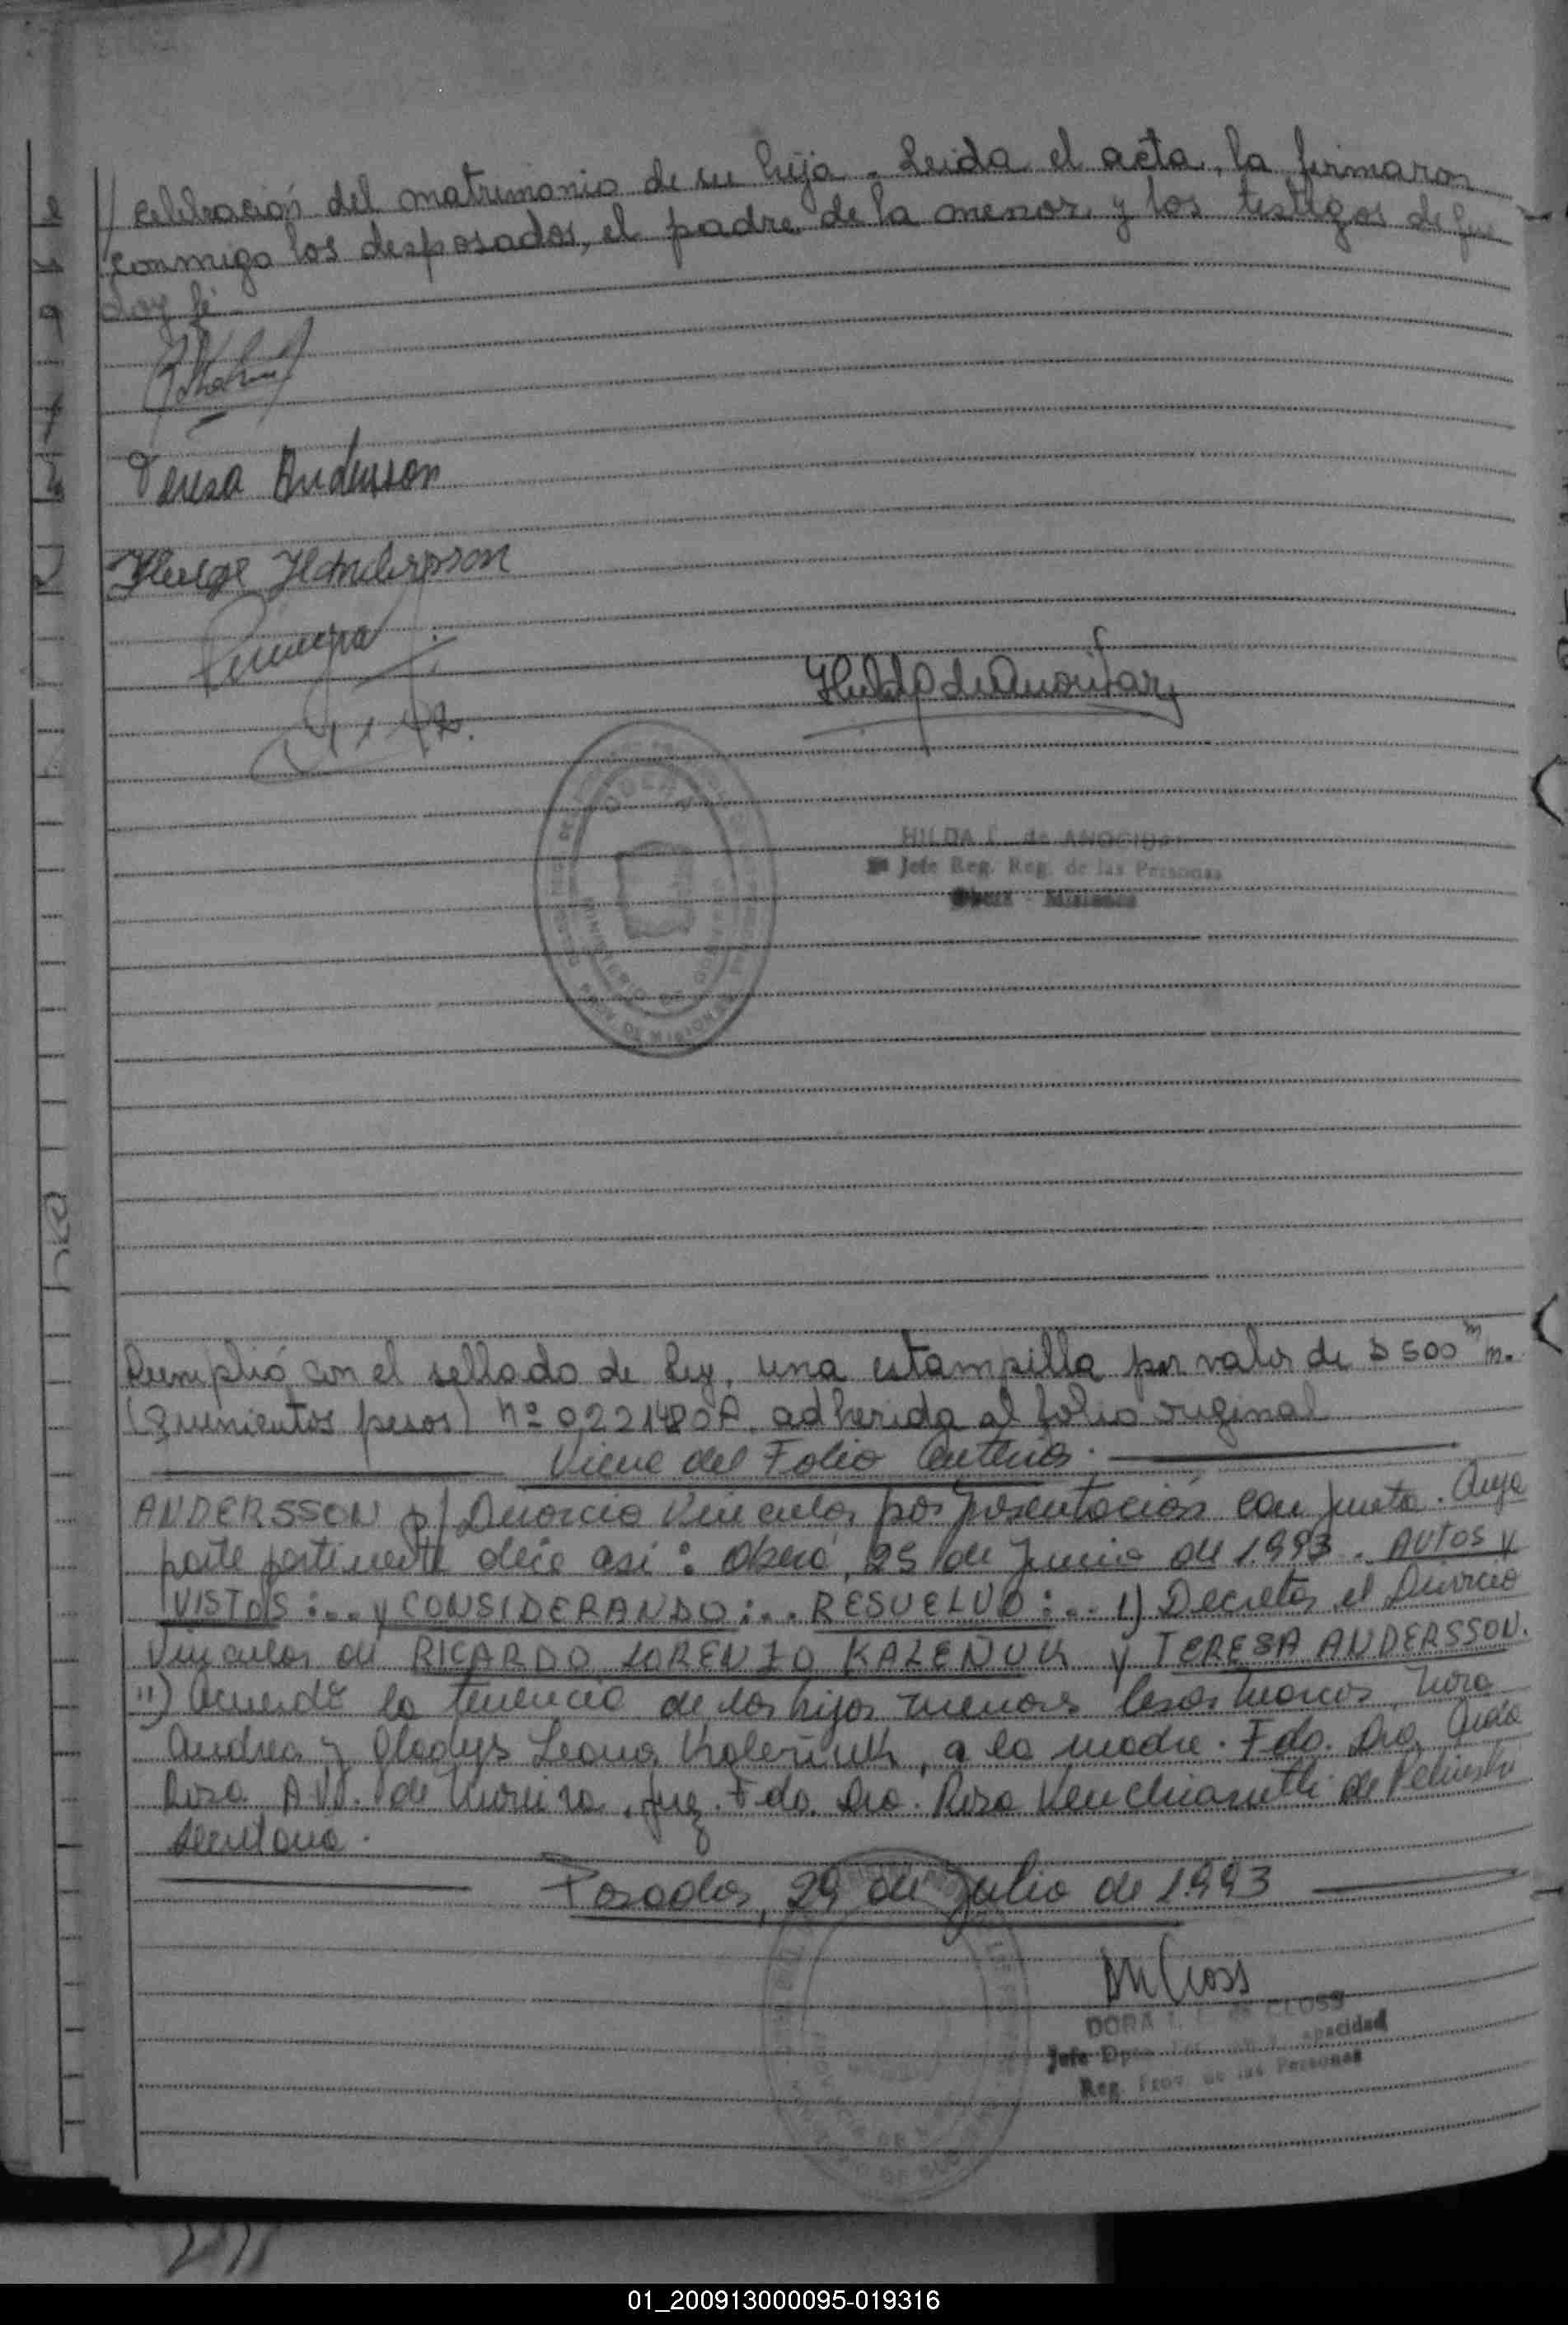 celebración del matrimonio de su hija. Leida el acta, la firmaron
conmigo los desposados, el padre de la menor y los testigos de que
doy fé.
Teresa Anderson
HILDA E. de
Jefe Reg. Reg. de las Personas
Oberá - Misiones
Cumplió con el sellado de Ley, una estampilla por valor de $ 500 m/n.
(quinientos pesos) nº 0221480A, adherida al folio original
Viene del Folio Anterior.
ANDERSSON s/ Divorcio Vincular por presentación conjunta. Cuya
parte pertinente dice así: Oberá, 25 de Junio de 1.993. AUTOS Y
VISTOS:.. y CONSIDERANDO:.. RESUELVO:.. 1) Decretar el Divorcio
Vincular de RICARDO LORENZO KALEÑUK y TERESA ANDERSSON.
11) Acuerdo la tenencia de los hijos menores Cesar Marcos, Nora
Andrea y Gladys Leona Kaleñuk, a la madre. Fdo. Dra.
Rosa de Moreira, Juez. Fdo. Dra. Rosa de
Secretaria.
Posadas, 29 de Julio de 1.993
DORA CLOSS
Jefe Dpto. Capacidad
Reg. Prov. de las Personas
01_200913000095-019316